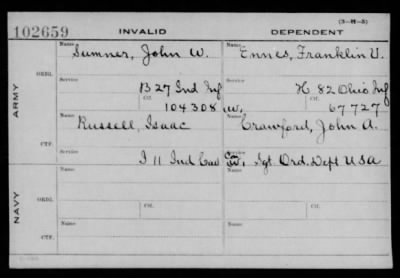 (3-H-5)
102659 INVALID DEPENDENT
Name Name
Sumner, John W. Ennes, Franklin V.
ARMY
ORIG.
Service Service
B 27 Ind Inf H 82 Ohio Inf
Ctf. Ctf.
104308 W. 67727
Name Name
Russell, Isaac Crawford, John A.
CTF.
Service Service
I 11 Ind Cav W, Sgt. Ord. Dept USA
NAVY
Name Name
ORIG.
Service Ctf. Service Ctf.
Name Name
CTF.
Service Service